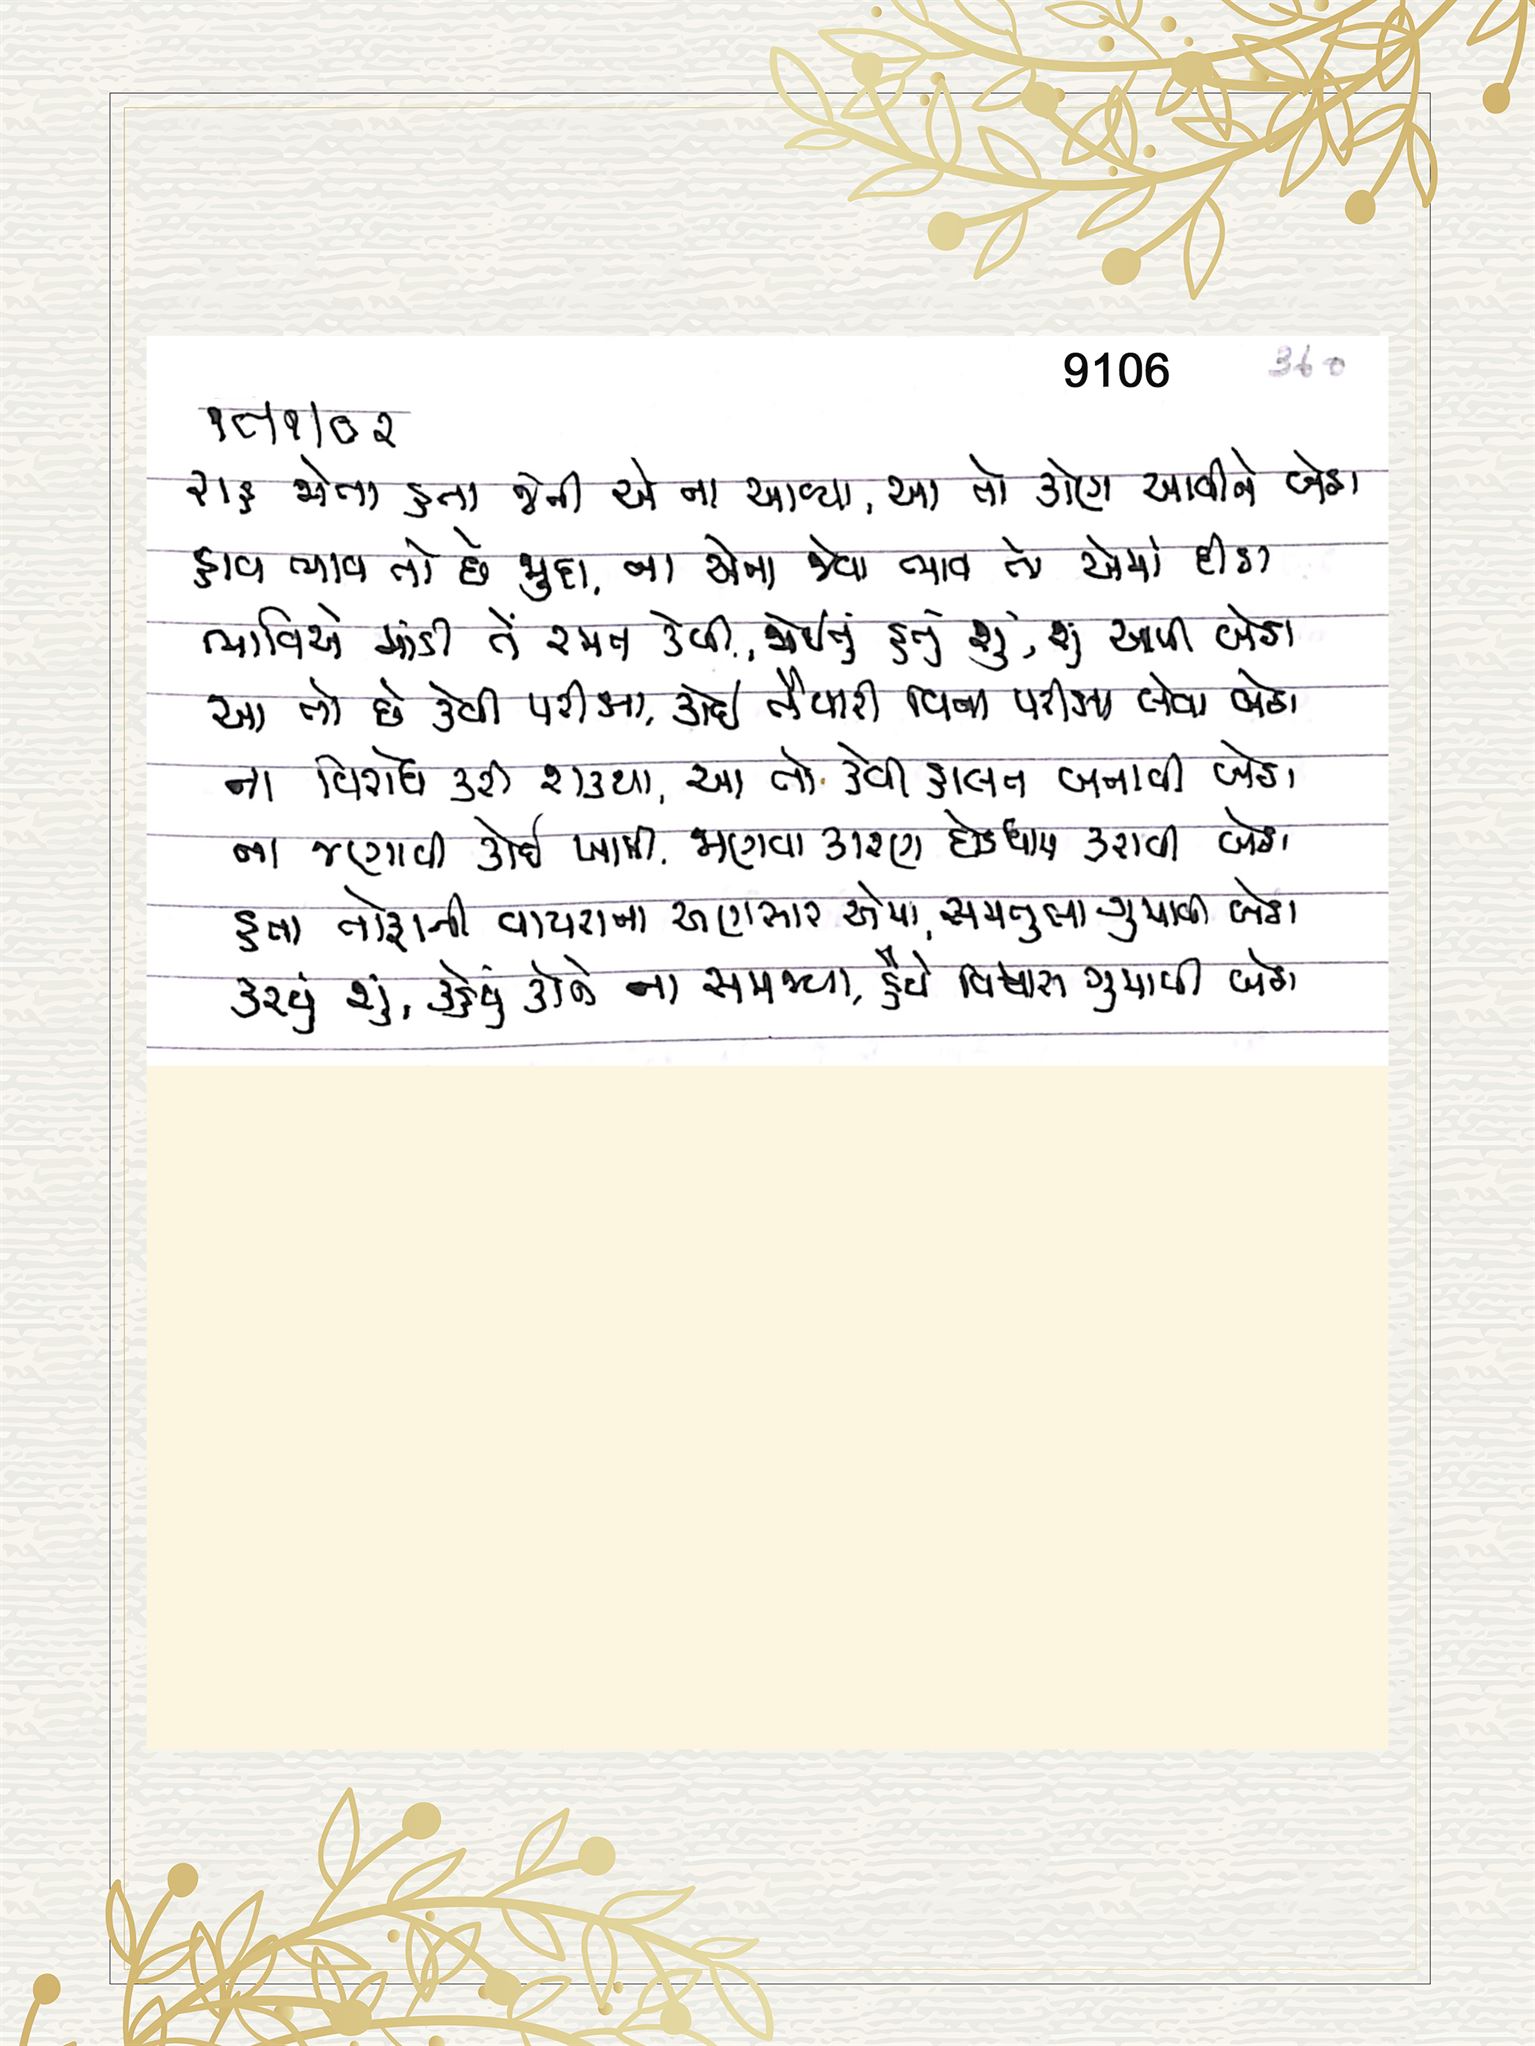 9106 ३६०
૧૯/૧/૦૨
રાહ જોતા હતા જેની એ ના આવ્યા, આ તો કોણ આવીને બેઠા
હાવ ભાવ તો છે જુદા, ના એના જેવા ભાવ તો એમાં દીઠા
ભાવિએ માંડી તેં રમત કેવી, જોઈતું હતું શું, શું આપી બેઠા
આ તો છે કેવી પરીક્ષા, કોઈ તૈયારી વિના પરીક્ષા લેવા બેઠા
ના વિરોધ કરી શક્યા, આ તો કેવી હાલત બનાવી બેઠા
ના જણાવી કોઈ ખામી, ભણવા કારણ દોડધામ કરાવી બેઠા
હતા તોફાની વાયરાના અણસાર એમા, સમતુલા ગુમાવી બેઠા
કરવું શું, કહેવું કોને ના સમજ્યા, હૈયે વિશ્વાસ ગુમાવી બેઠા